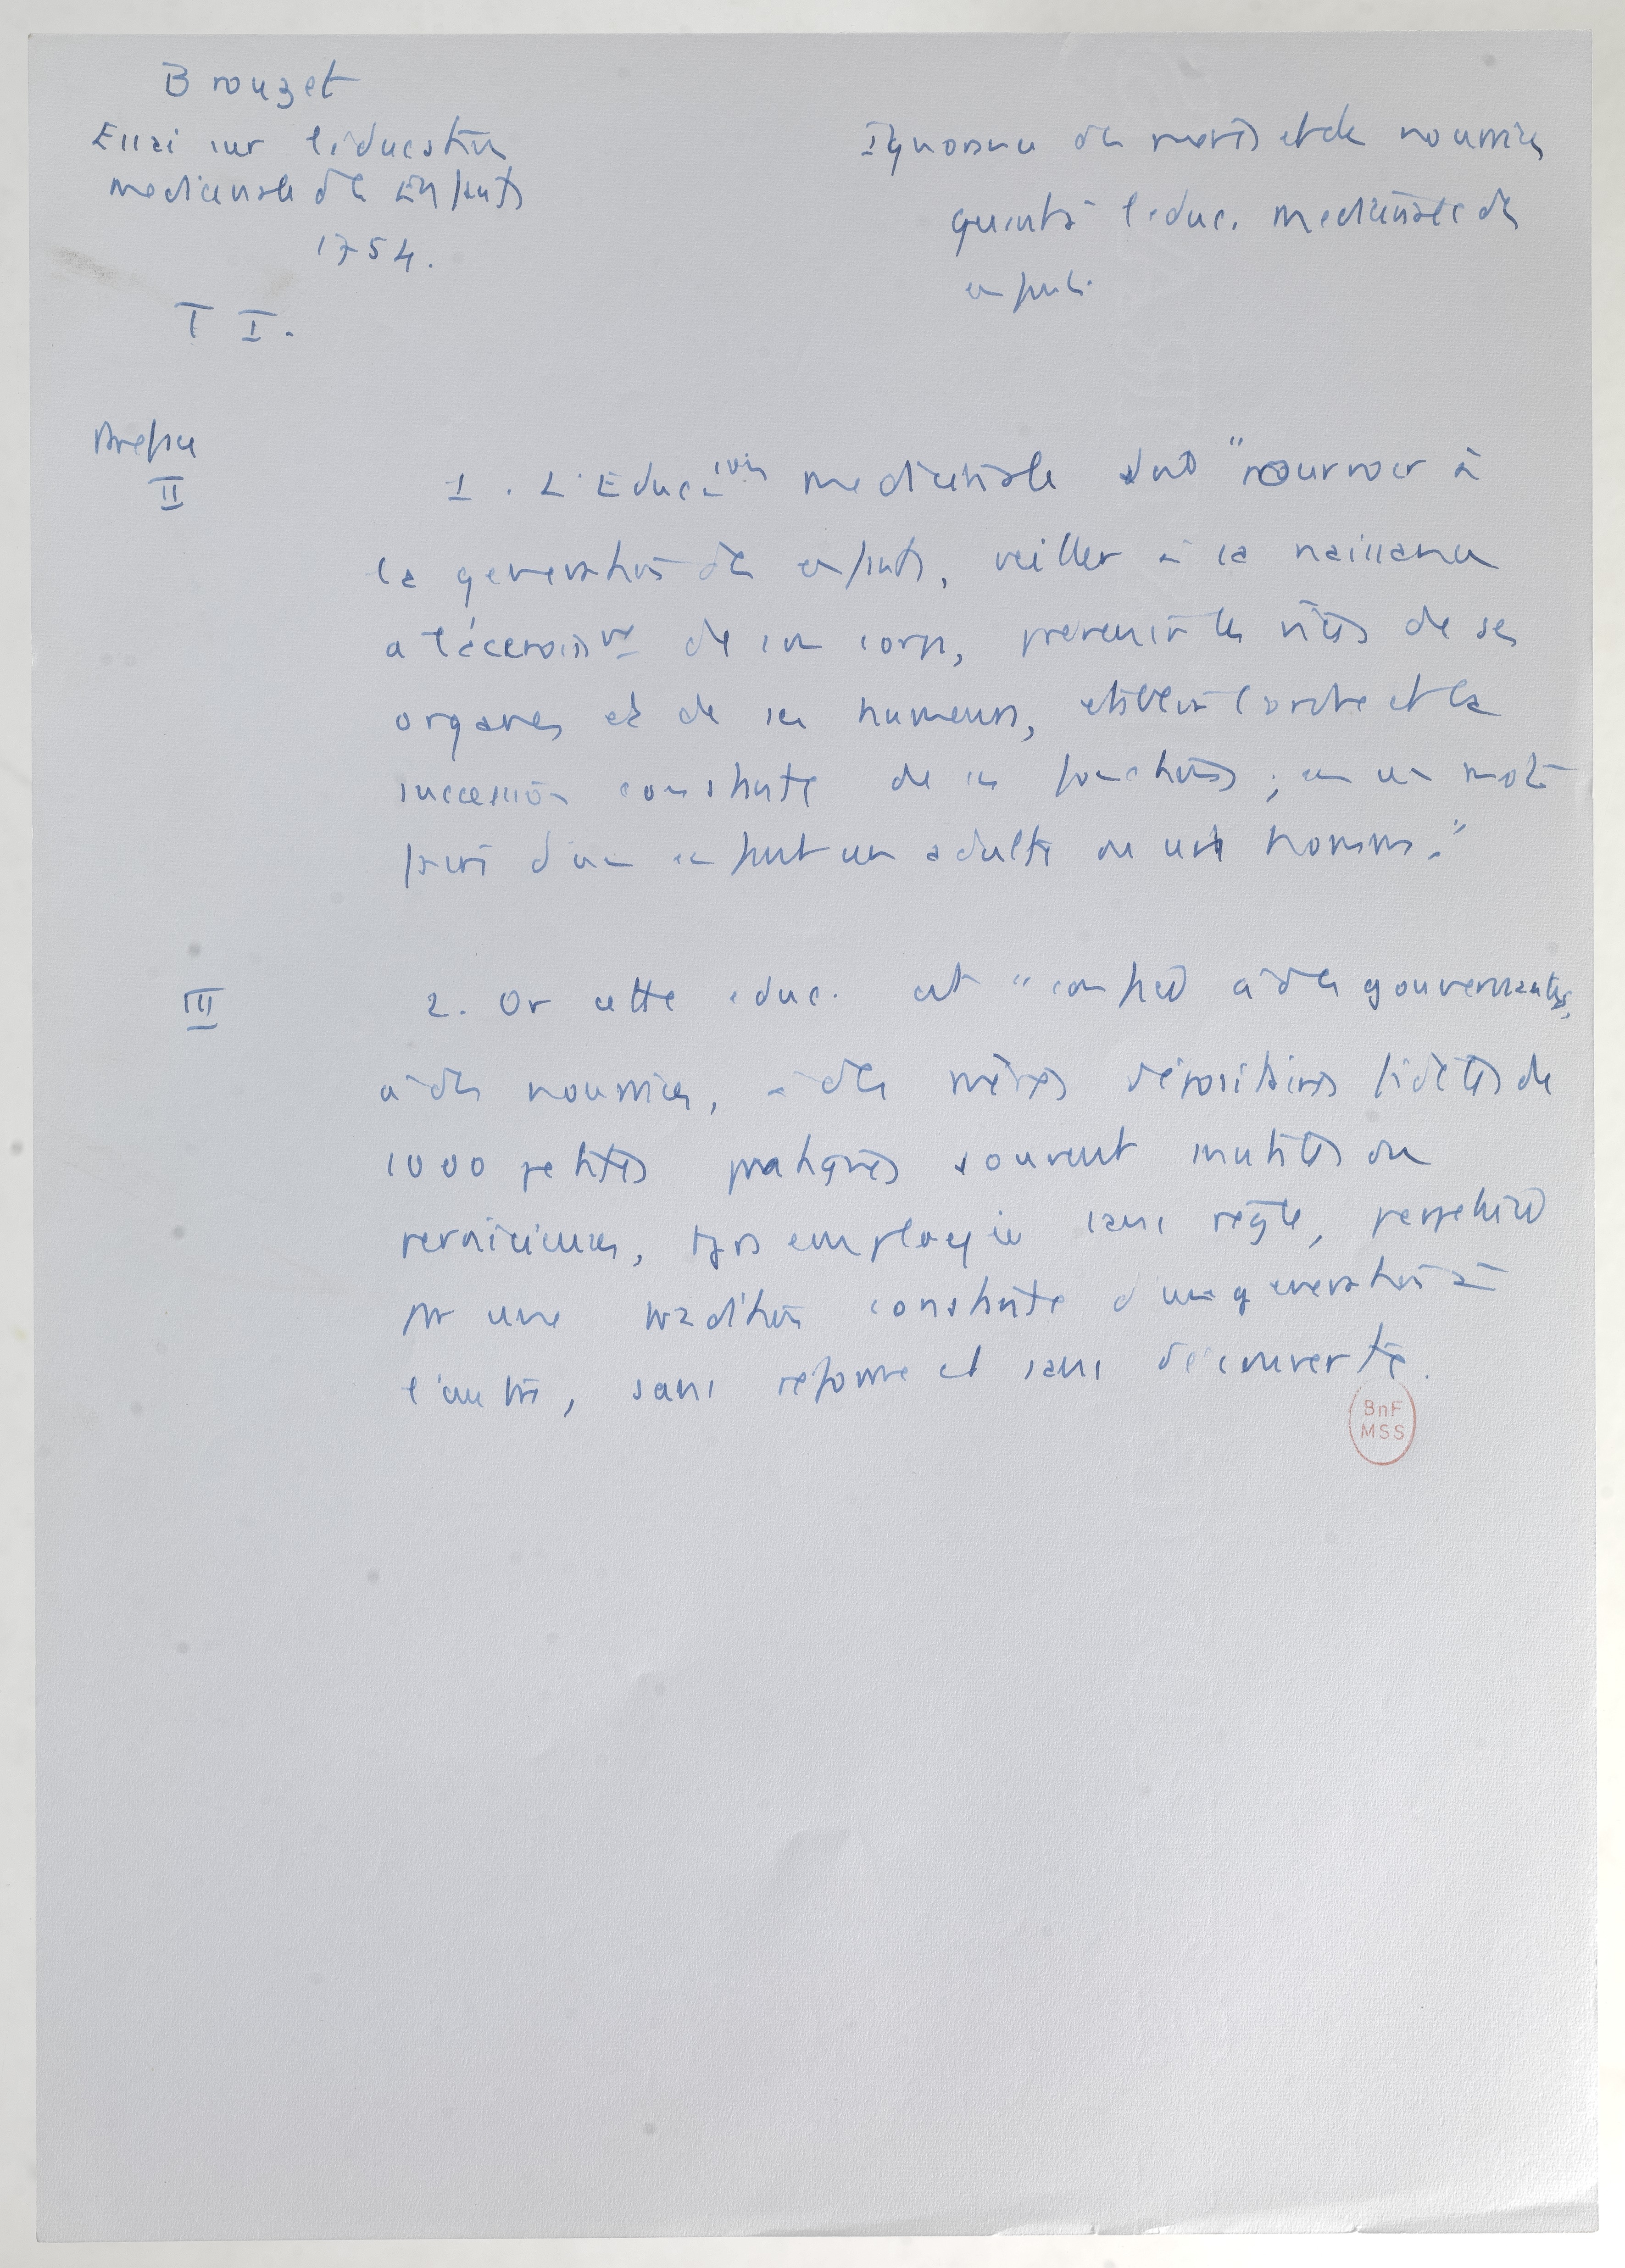 Brouzet
Essai sur l'éducation
medicinale des Enfants
1754.
T I.
Ignorance des mères et des nourrices
quant à l'educ. medicinale des
enfants.
Preface
II
1. L'Education medicinale doit "pourvoir à
la generation des enfants, veiller à la naissance
à l'accroisst de son corps, prevenir les vices de ses
organes et de ses humeurs, etablir l'ordre et la
succession constante de ses fonctions ; en un mot
faire d'un enfant un adulte ou un homme."
III
2. Or cette educ. est "confiée à des gouvernantes,
à des nourrices, à des mères dépositaires fidèles de
1000 petites pratiques souvent inutiles ou
pernicieuses, tjrs employées sans règle, perpetuées
par une tradition constante d'une generation à
l'autre, sans reforme et sans découverte.
BnF
MSS